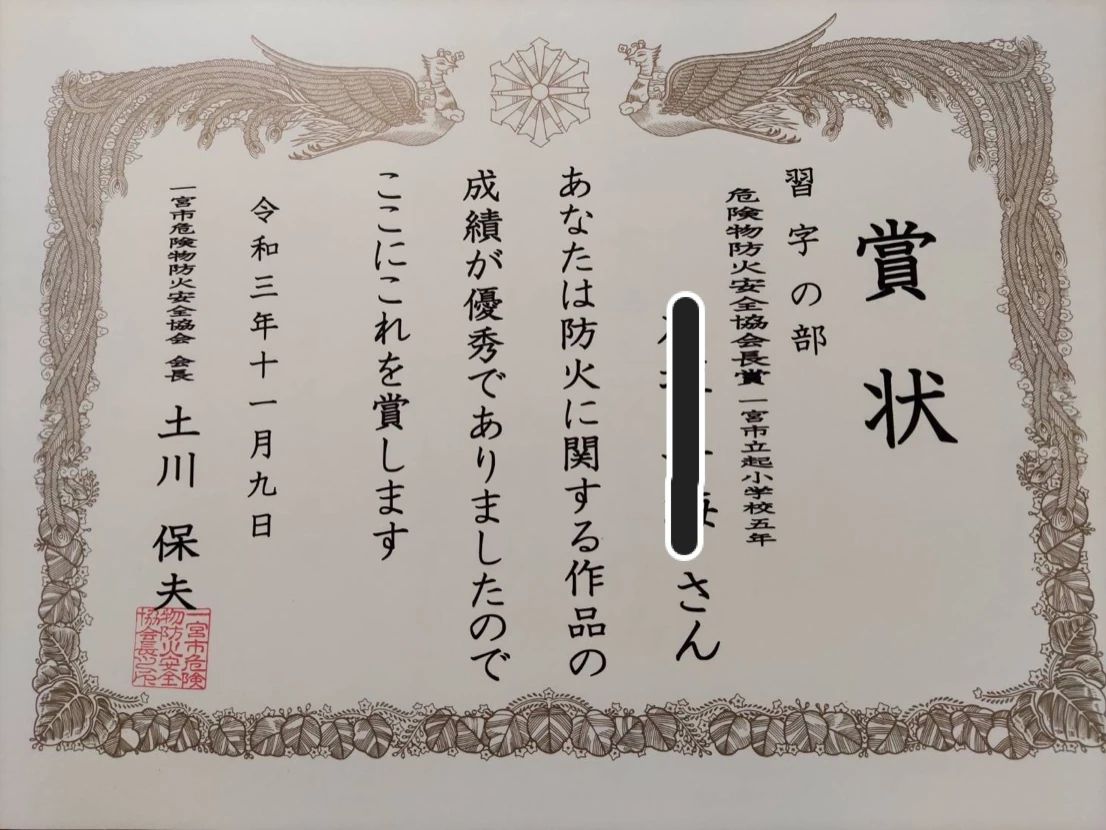 賞状
習字の部
危険物防火安全協会長賞 一宮市立起小学校五年
さん
あなたは防火に関する作品の
成績が優秀でありましたので
ここにこれを賞します
令和三年十一月九日
一宮市危険物防火安全協会 会長 土川 保夫
一宮市危険
物防火安全
協会長之印